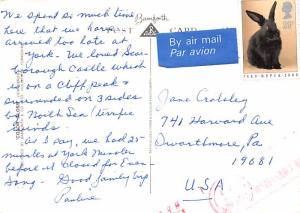 We spent so much time
here that we have
arrived too late at
York. We loved Scar-
borough Castle which
is on a cliff peak &
surrounded on 3 sides
by North Sea/terrific
winds.
As I say, we had 25
minutes at York Minster
before it closed for Even
Song. Good family trip
Pauline
Bamforth
POST CARD
By air mail
Par avion
Jane Cratsley
741 Harvard Ave
Swarthmore, Pa
19681
U.S.A